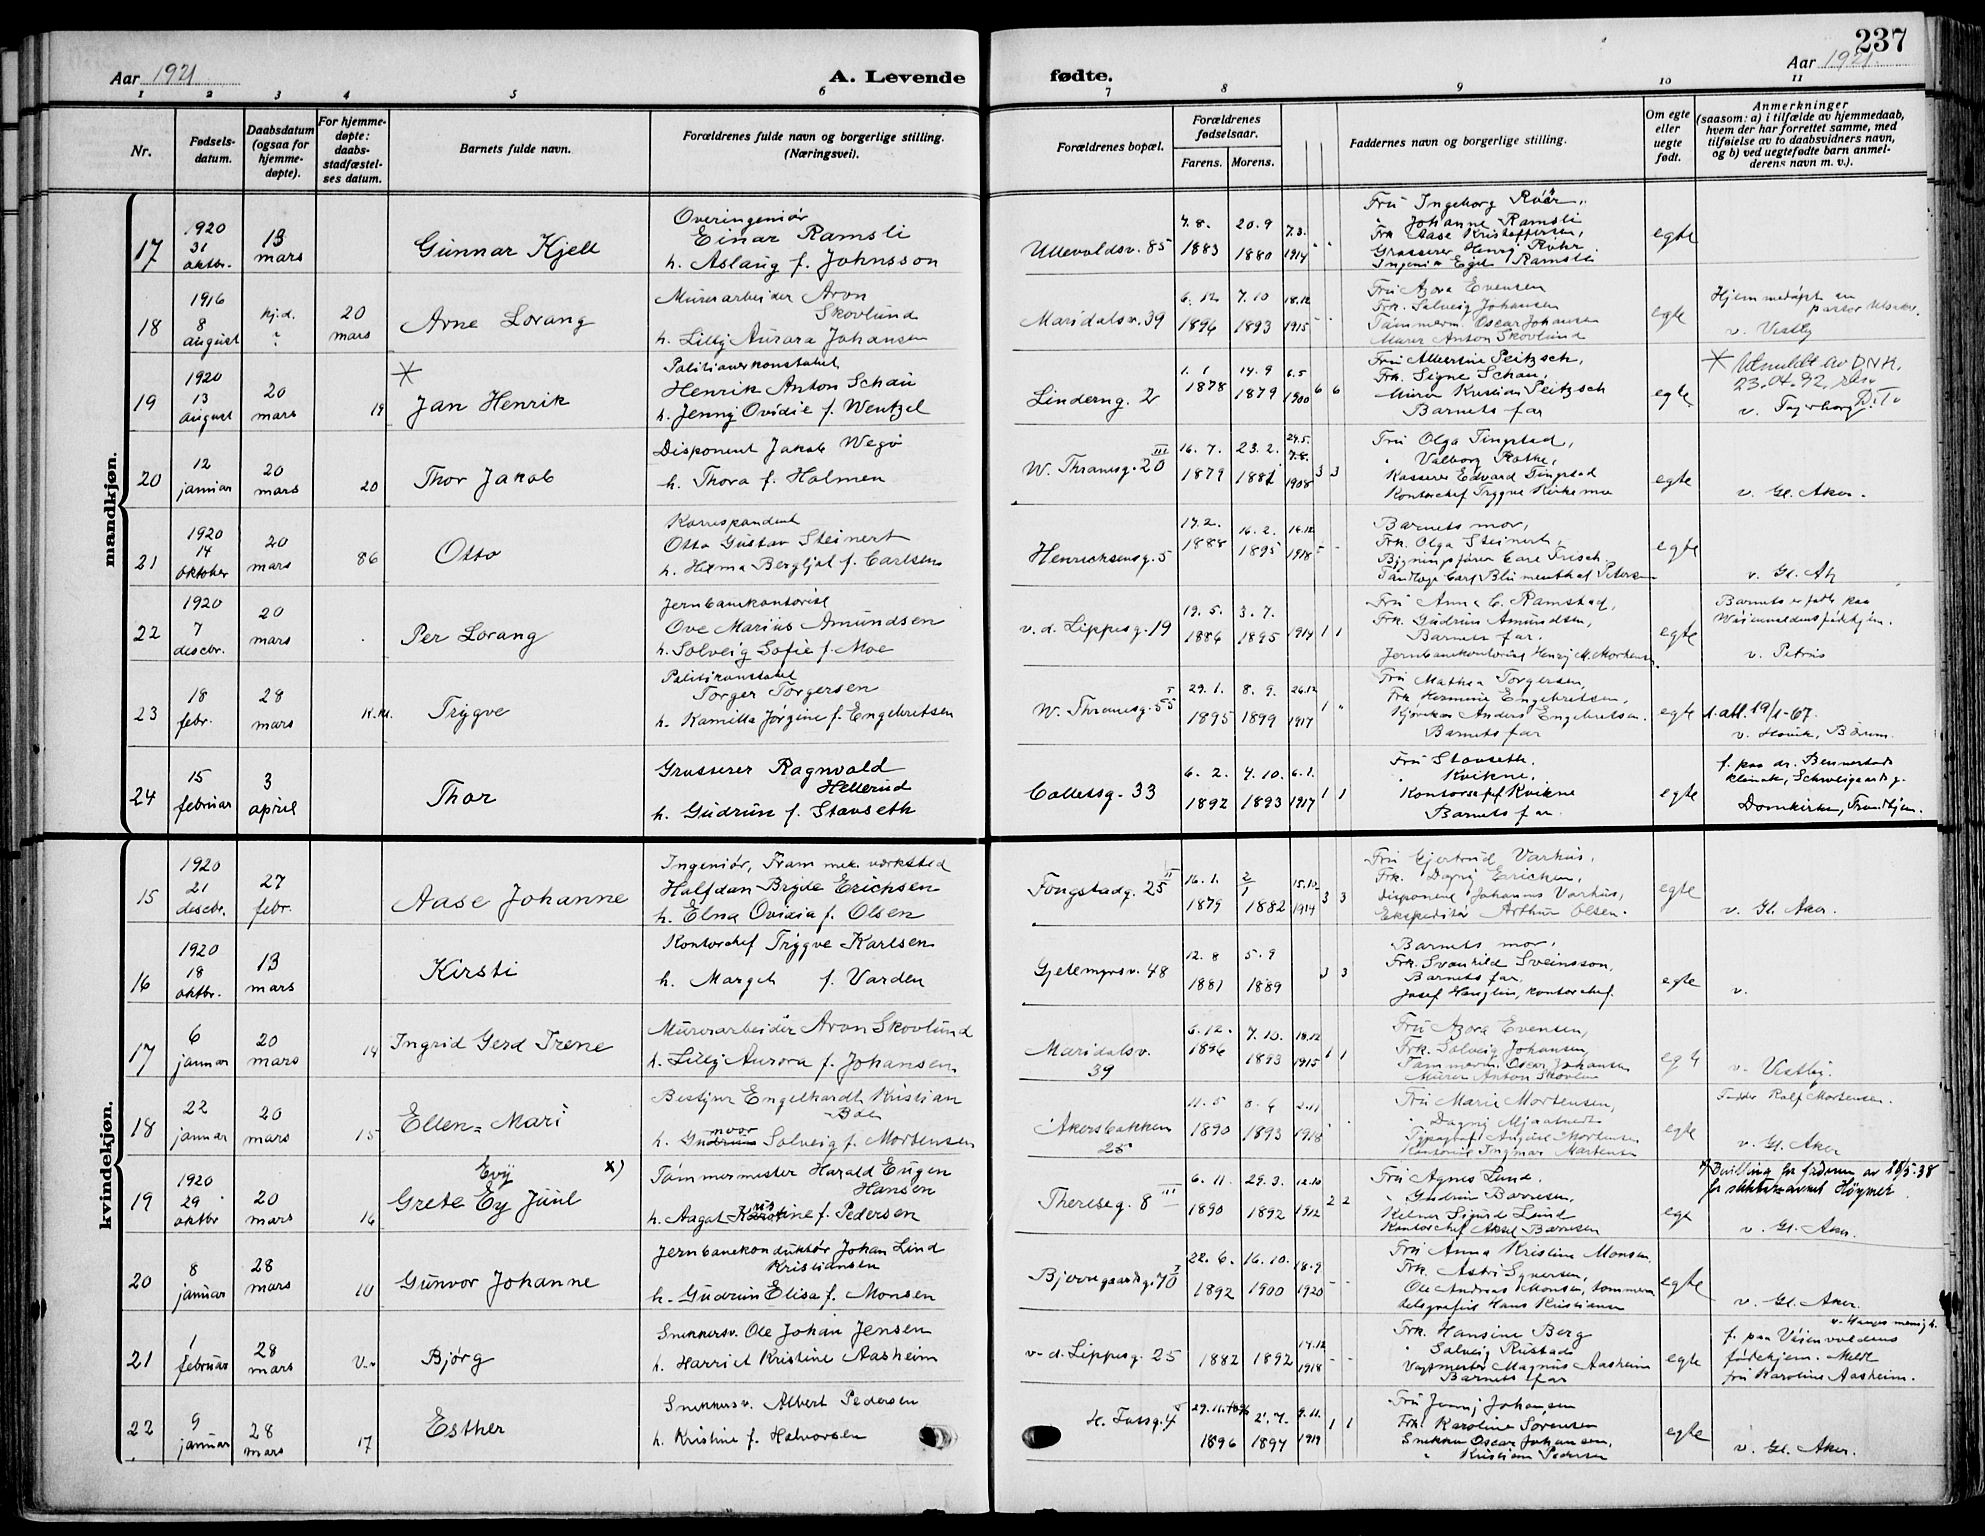 237
Aar 1921
A. Levende
fødte.
Aar 1921.
1 2 3 4 5 6 7 8 9 10 11
Nr.
Fødsels-
datum.
Daabsdatum
(ogsaa for
hjemme-
døpte).
For hjemme-
døpte:
daabs-
stadfæstel-
ses datum.
Barnets fulde navn.
Forældrenes fulde navn og borgerlige stilling.
(Næringsvei).
Forældrenes bopæl.
Forældrenes
fødselsaar.
Farens. Morens.
Faddernes navn og borgerlige stilling.
Om egte
eller
uegte
født.
Anmerkninger
(saasom: a) i tilfælde av hjemmedaab,
hvem der har forrettet samme, med
tilføielse av to daabsvidners navn,
og b) ved uegtefødte barn anmel-
derens navn m. v.).
mandkjøn.
17
1920
31
oktbr.
13
mars
Gunnar Kjell
Overingeniør
Einar Ramsli
h. Aslaug f. Johnsson
Ullevoldsv. 85
7.8. 1883
20.9 1880
7.3. 1914
Fru Ingeborg
Johanne Ramsli
Frk. Aase Kristoffersen,
Grosserer Henry Röhr.
Ingeniør Egil Ramsli
egte
18
1916
8
august
hj.d.
20
mars
Arne Lorang
Murerarbeider Aron
Skovlund
h. Lilly Aurora Johansen
Maridalsv. 39
6.12 1896
7.10 1893
18.12 1915
Fru Azora Evensen
Frk. Solveig Johansen
Tømmerm. Oscar Johansen
Murer Anton Skovlund
egte
Hjemmedøpt av
pastor
v. Vestby
19
1920
13
august
20
mars
19
Jan Henrik
Politioverkonstabel
Henrik Anton Schau
h. Jenny Ovidie f. Wentzel
Linderng. 2
1.1 1878
14.9 1879
6.5 1900
6 6
Fru Albertine Peitzsch,
Frk. Signe Schau,
Murer Kristian Peitzsch
Barnets far
egte
Utmeldt av DNK.
23.04.92
v. Fagerborg
20
12
januar
20
mars
20
Thor Jakob
Disponent Jakob Wegø
h. Thora f. Holmen
W. Thranesg. 20 III
16.7. 1879
23.2. 1881
1908
3 3
Fru Olga Tingstad,
" Valborg Rothe,
Kasserer Edvard Tingstad
Kontorchef Trygve Kirkemo
egte
v. Gl. Aker.
21
1920
14
oktober
20
mars
86
Otto
Korrespondent
Otto Gustav Steinert
h. Helma Bergljot f. Carlsen
Henrichsensg. 5
17.2. 1888
16.2. 1895
16.12 1918
Barnets mor,
Frk. Olga Steinert,
Bygningsfører Care Frisch.
Tandlæge Carl Blumenthal Petersen
egte
v. Gl. Ak
22
1920
7
desebr.
20
mars
Per Lorang
Jernbanekontorist
Ove Marius Amundsen
h. Solveig Sofie f. Moe
v. d. Lippesg. 19
19.5. 1886
3.7. 1895
1914
1 1
Fru Anna C. Ramstad,
Frk. Gudrun Amundsen,
Barnets far.
Jernbanekontorist Henry M. Mortensen
egte
Barnet er født paa
v. Petrus
23
18
febr.
28
mars
K.M.
Trygve
Politikonstabel
Torger Torgersen
h. Kamilla Jørgine f. Engebretsen
W. Thranesg. 55
29.1. 1895
8.9. 1899
26.12 1917
1
Fru Mathea Torgersen,
Frk. Hermine Engebretsen,
Anders Engebretsen.
Barnets far
egte
1. att. 19/1-67.
v. Høvik, Bærum.
24
15
februar
3
april
Thor
Grosserer Ragnvald
Hellerud
h. Gudrun f. Stavseth
Colletsg. 33
6.2. 1892
4.10. 1893
6.1. 1917
1 1
Fru Stavseth.
" Kvikne,
Kontorchef Kvikne
Barnets far.
egte
f. paa dr. Bennerstads
klinik, Schweigaardsg.
Domkirken, Trondhjem.
kvindekjøn.
15
1920
21
desebr.
27
febr.
Aase Johanne
Ingeniør, Fram mek. værksted
Halfdan Bryde Erichsen
h. Elna Ovidia f. Olsen
25 II
16.1. 1879
2/1 1882
15.10 1914
3 3
Fru Gjertrud Varhus,
Frk. Dagny Ericksen,
Disponent Johannes Varhus,
Ekspeditør Arthur Olsen.
egte
v. Gl. Aker.
16
1920
18
oktbr.
13
mars
Kirsti
Kontorchef Trygve Karlsen
h. Margit f. Varden
Gjetemyrsv. 48
12.8 1881
5.9 1889
3 3
Barnets mor,
Frk. Svanhild Sveinsson,
Barnets far,
Josef Hauglin, kontorchef.
egte
v.
17
6
januar
20
mars
14
Ingrid Gerd Irene
Murerarbeider Aron Skovlund
h. Lilly Aurora f. Johansen
Maridalsv.
39
6.12. 1896
7.10. 1893
18.12 1915
1 1
Fru Azora Evensen,
Frk. Solveig Johansen
Tømmerm. Oscar Johansen
Murer Anton Skovlund
egte
v. Vestby.
18
22
januar
20
mars
15
Ellen-Mari
Bestyrer Engelhardt Kristian
Boe
h. Gudrun Solveig f. Mortensen
Akersbakken
25
11.5 1890
8.4 1893
2.11 1918
Fru Marie Mortensen,
" Dagny
Typograf August Mortensen
Kontorist Ingmar Mortensen
egte
Fadder Rolf Mortensen.
v. Gl. Aker
19
1920
29
oktbr
20
mars
16
Evy x)
Grete Ey Juul
Tømmermester Harald Eugen
Hansen
h. Aagot f. Pedersen
Thereseg. 8 III
6.11. 1890
29.3. 1892
12.10 1912
2 2
Fru Agnes Lund.
" Gudrun Børresen,
Kelner Sigurd Lund
Kontorchef Aksel Børresen
egte
v. Gl. Aker.
20
8
januar
28
mars
10
Gunvor Johanne
Jernbanekonduktør Johan Lind
Kristiansen
h. Gudrun Elisa f. Monsen
Bjerregaardsg. 70
22.6. 1892
16.10. 1900
18.9 1920
Fru Anna Kristine Monsen
Frk. Astri Syversen,
Ole Andreas Monsen, tømmerm
telegrafist Hans Kristiansen
egte
v. Gl. Aker.
21
1
februar
28
mars
Bjørg
Snekkersv. Ole Johan Jensen
h. Harriet Kristine Aasheim
v. d. Lippesg. 25
1882
1892
14.12 1918
Frk. Hansine Berg
" Solveig Rustad
Vagtmester Magnus Aasheim
Barnets far
egte
v. Hauges menigh.
f. paa Veienvoldens
fødehjem. Meldt
fru Karoline Aasheim.
22
9
januar
28
mars
17
Esther
Snekkersv. Albert Pedersen
h. Kristine f. Halvorsen
29.11. 1896
2.7. 1897
9.11. 1919
1 1
Fru Jenny Johansen
Frk. Karoline Sørensen
Snekker Oscar Johansen,
" Kristian Pedersen
egte
v. Gl. Aker.